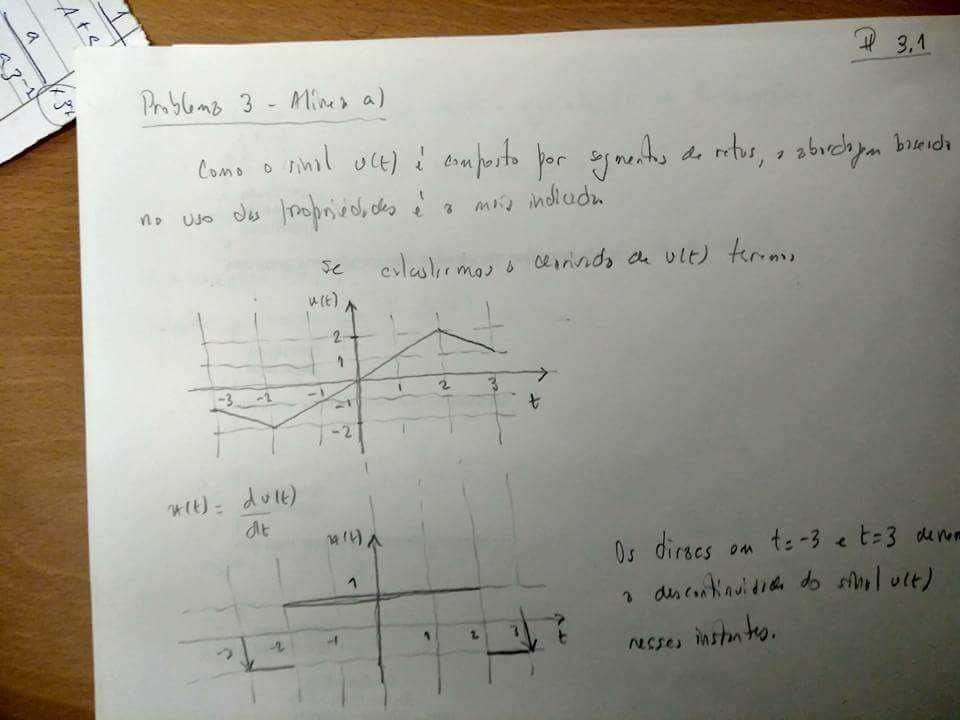 # 3.1
Problema 3 - Alínea a)
Como o sinal v(t) é composto por segmentos de retas, a abordagem baseada
no uso das propriedades é a mais indicada.
Se calcularmos a derivada de v(t) teremos
v(t)
2
1
-3 -2 -1 1 2 3
-1
t
-2
x(t) = dv(t)
dt
x(t)
1
-3 -2 -1 1 2 3 t
Os diracs em t=-3 e t=3 devem
a descontinuidade do sinal v(t)
nesses instantes.
a
1+a
1